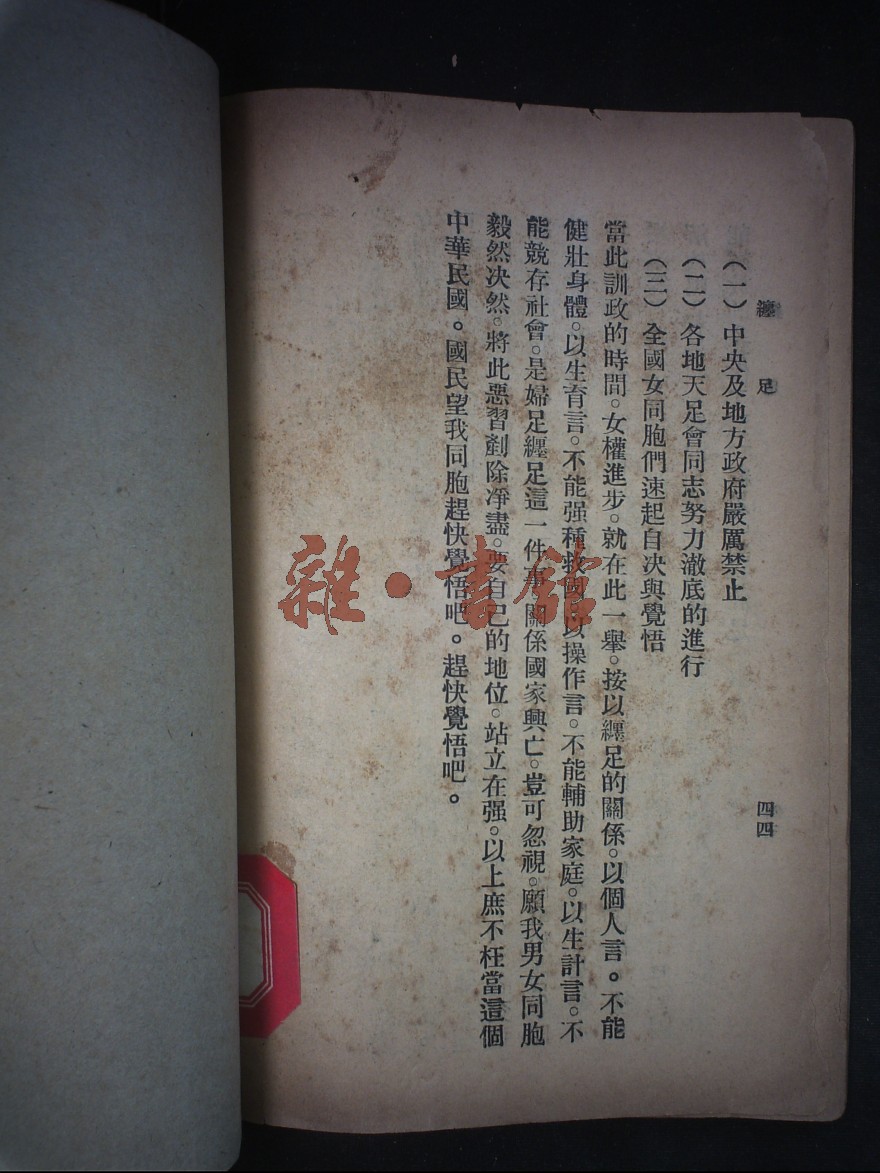 纏足
四四
（一）中央及地方政府嚴厲禁止
（二）各地天足會同志努力澈底的進行
（三）全國女同胞們速起自决與覺悟
當此訓政的時間。女權進步。就在此一舉。按以纏足的關係。以個人言。不能
健壯身體。以生育言。不能强種救國。以操作言。不能輔助家庭。以生計言。不
能競存社會。是婦足纏足這一件事。關係國家興亡。豈可忽視。願我男女同胞
毅然决然。將此惡習剷除凈盡。要自己的地位。站立在强。以上庶不枉當這個
中華民國。國民望我同胞趕快覺悟吧。趕快覺悟吧。
雜·書館